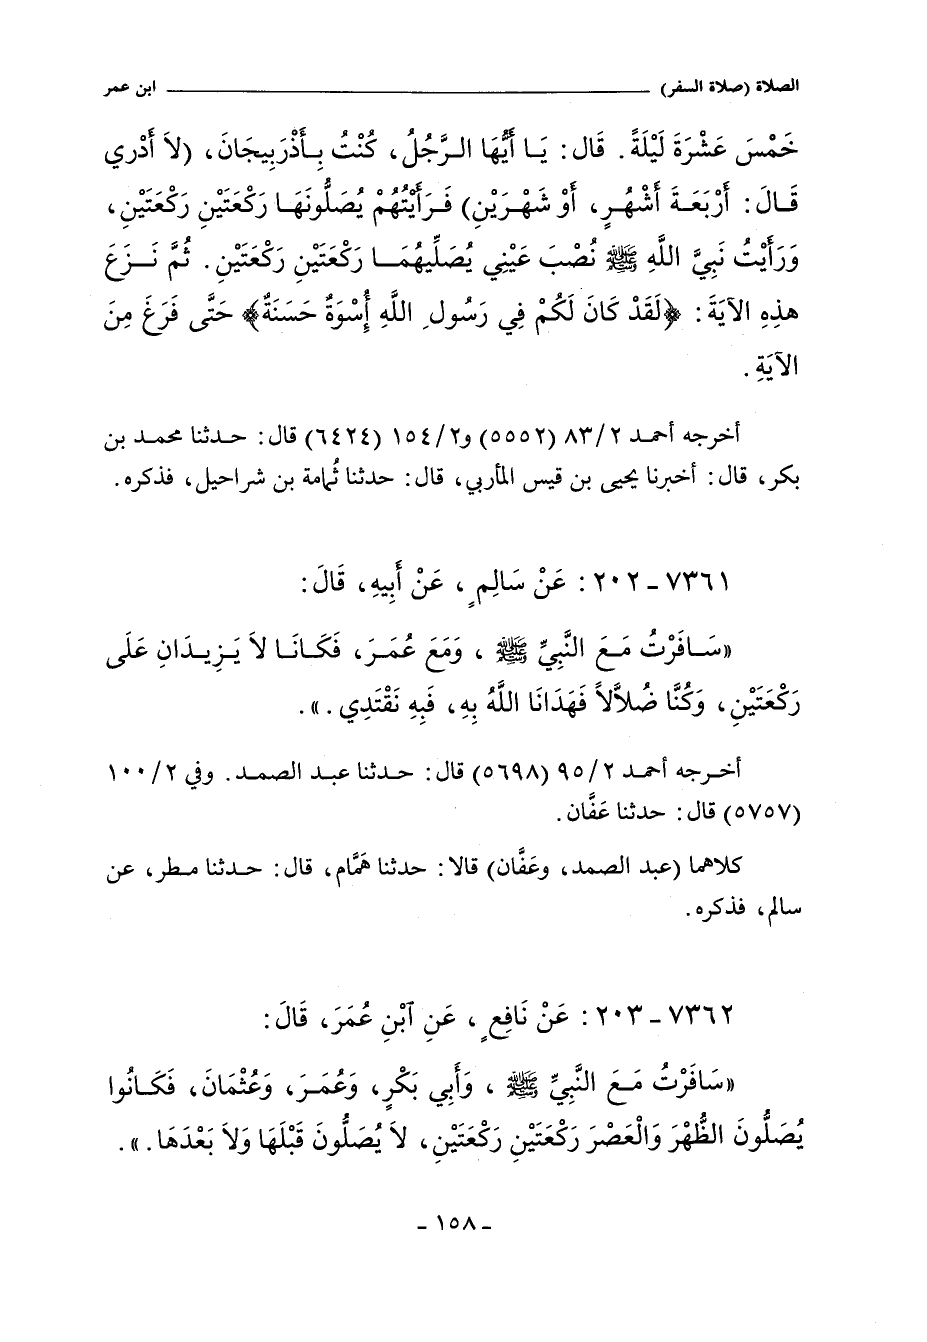 الصلاة (صلاة السفر) ــــــــــ ابن عمر
خَمْسَ عَشْرَةَ لَيْلَةً. قَالَ: يَا أَيُّهَا الرَّجُلُ، كُنْتُ بِأَذْرَبِيجَانَ، (لاَ أَدْرِي
قَالَ: أَرْبَعَةَ أَشْهُرٍ، أَوْ شَهْرَيْنِ) فَرَأَيْتُهُمْ يُصَلُّونَهَا رَكْعَتَيْنِ رَكْعَتَيْنِ،
وَرَأَيْتُ نَبِيَّ اللَّهِ ﷺ نُصْبَ عَيْنِي يُصَلِّيهُمَا رَكْعَتَيْنِ رَكْعَتَيْنِ. ثُمَّ نَزَعَ
هذِهِ الآيَةَ: ﴿لَقَدْ كَانَ لَكُمْ فِي رَسُولِ اللَّهِ أُسْوَةٌ حَسَنَةٌ﴾ حَتَّى فَرَغَ مِنَ
الآيَةِ.
أخرجه أحمد ٨٣/٢ (٥٥٥٢) و١٥٤/٢ (٦٤٢٤) قال: حدثنا محمد بن
بكر، قال: أخبرنا يحيى بن قيس المأربي، قال: حدثنا ثُمامة بن شراحيل، فذكره.
٧٣٦١ - ٢٠٢: عَنْ سَالِمٍ، عَنْ أَبِيهِ، قَالَ:
«سَافَرْتُ مَعَ النَّبِيِّ ﷺ، وَمَعَ عُمَرَ، فَكَانَا لاَ يَزِيدَانِ عَلَى
رَكْعَتَيْنِ، وَكُنَّا ضُلاَّلاً فَهَدَانَا اللَّهُ بِهِ، فَبِهِ نَقْتَدِي.».
أخرجه أحمد ٩٥/٢ (٥٦٩٨) قال: حدثنا عبد الصمد. وفي ١٠٠/٢
(٥٧٥٧) قال: حدثنا عَفَّان.
كلاهما (عبد الصمد، وعَفَّان) قالا: حدثنا هَمَّام، قال: حدثنا مطر، عن
سالم، فذكره.
٧٣٦٢ - ٢٠٣: عَنْ نَافِعٍ، عَنِ ٱبْنِ عُمَرَ، قَالَ:
«سَافَرْتُ مَعَ النَّبِيِّ ﷺ، وَأَبِي بَكْرٍ، وَعُمَرَ، وَعُثْمَانَ، فَكَانُوا
يُصَلُّونَ الظُّهْرَ وَالْعَصْرَ رَكْعَتَيْنِ رَكْعَتَيْنِ، لاَ يُصَلُّونَ قَبْلَهَا وَلاَ بَعْدَهَا.».
- ١٥٨ -